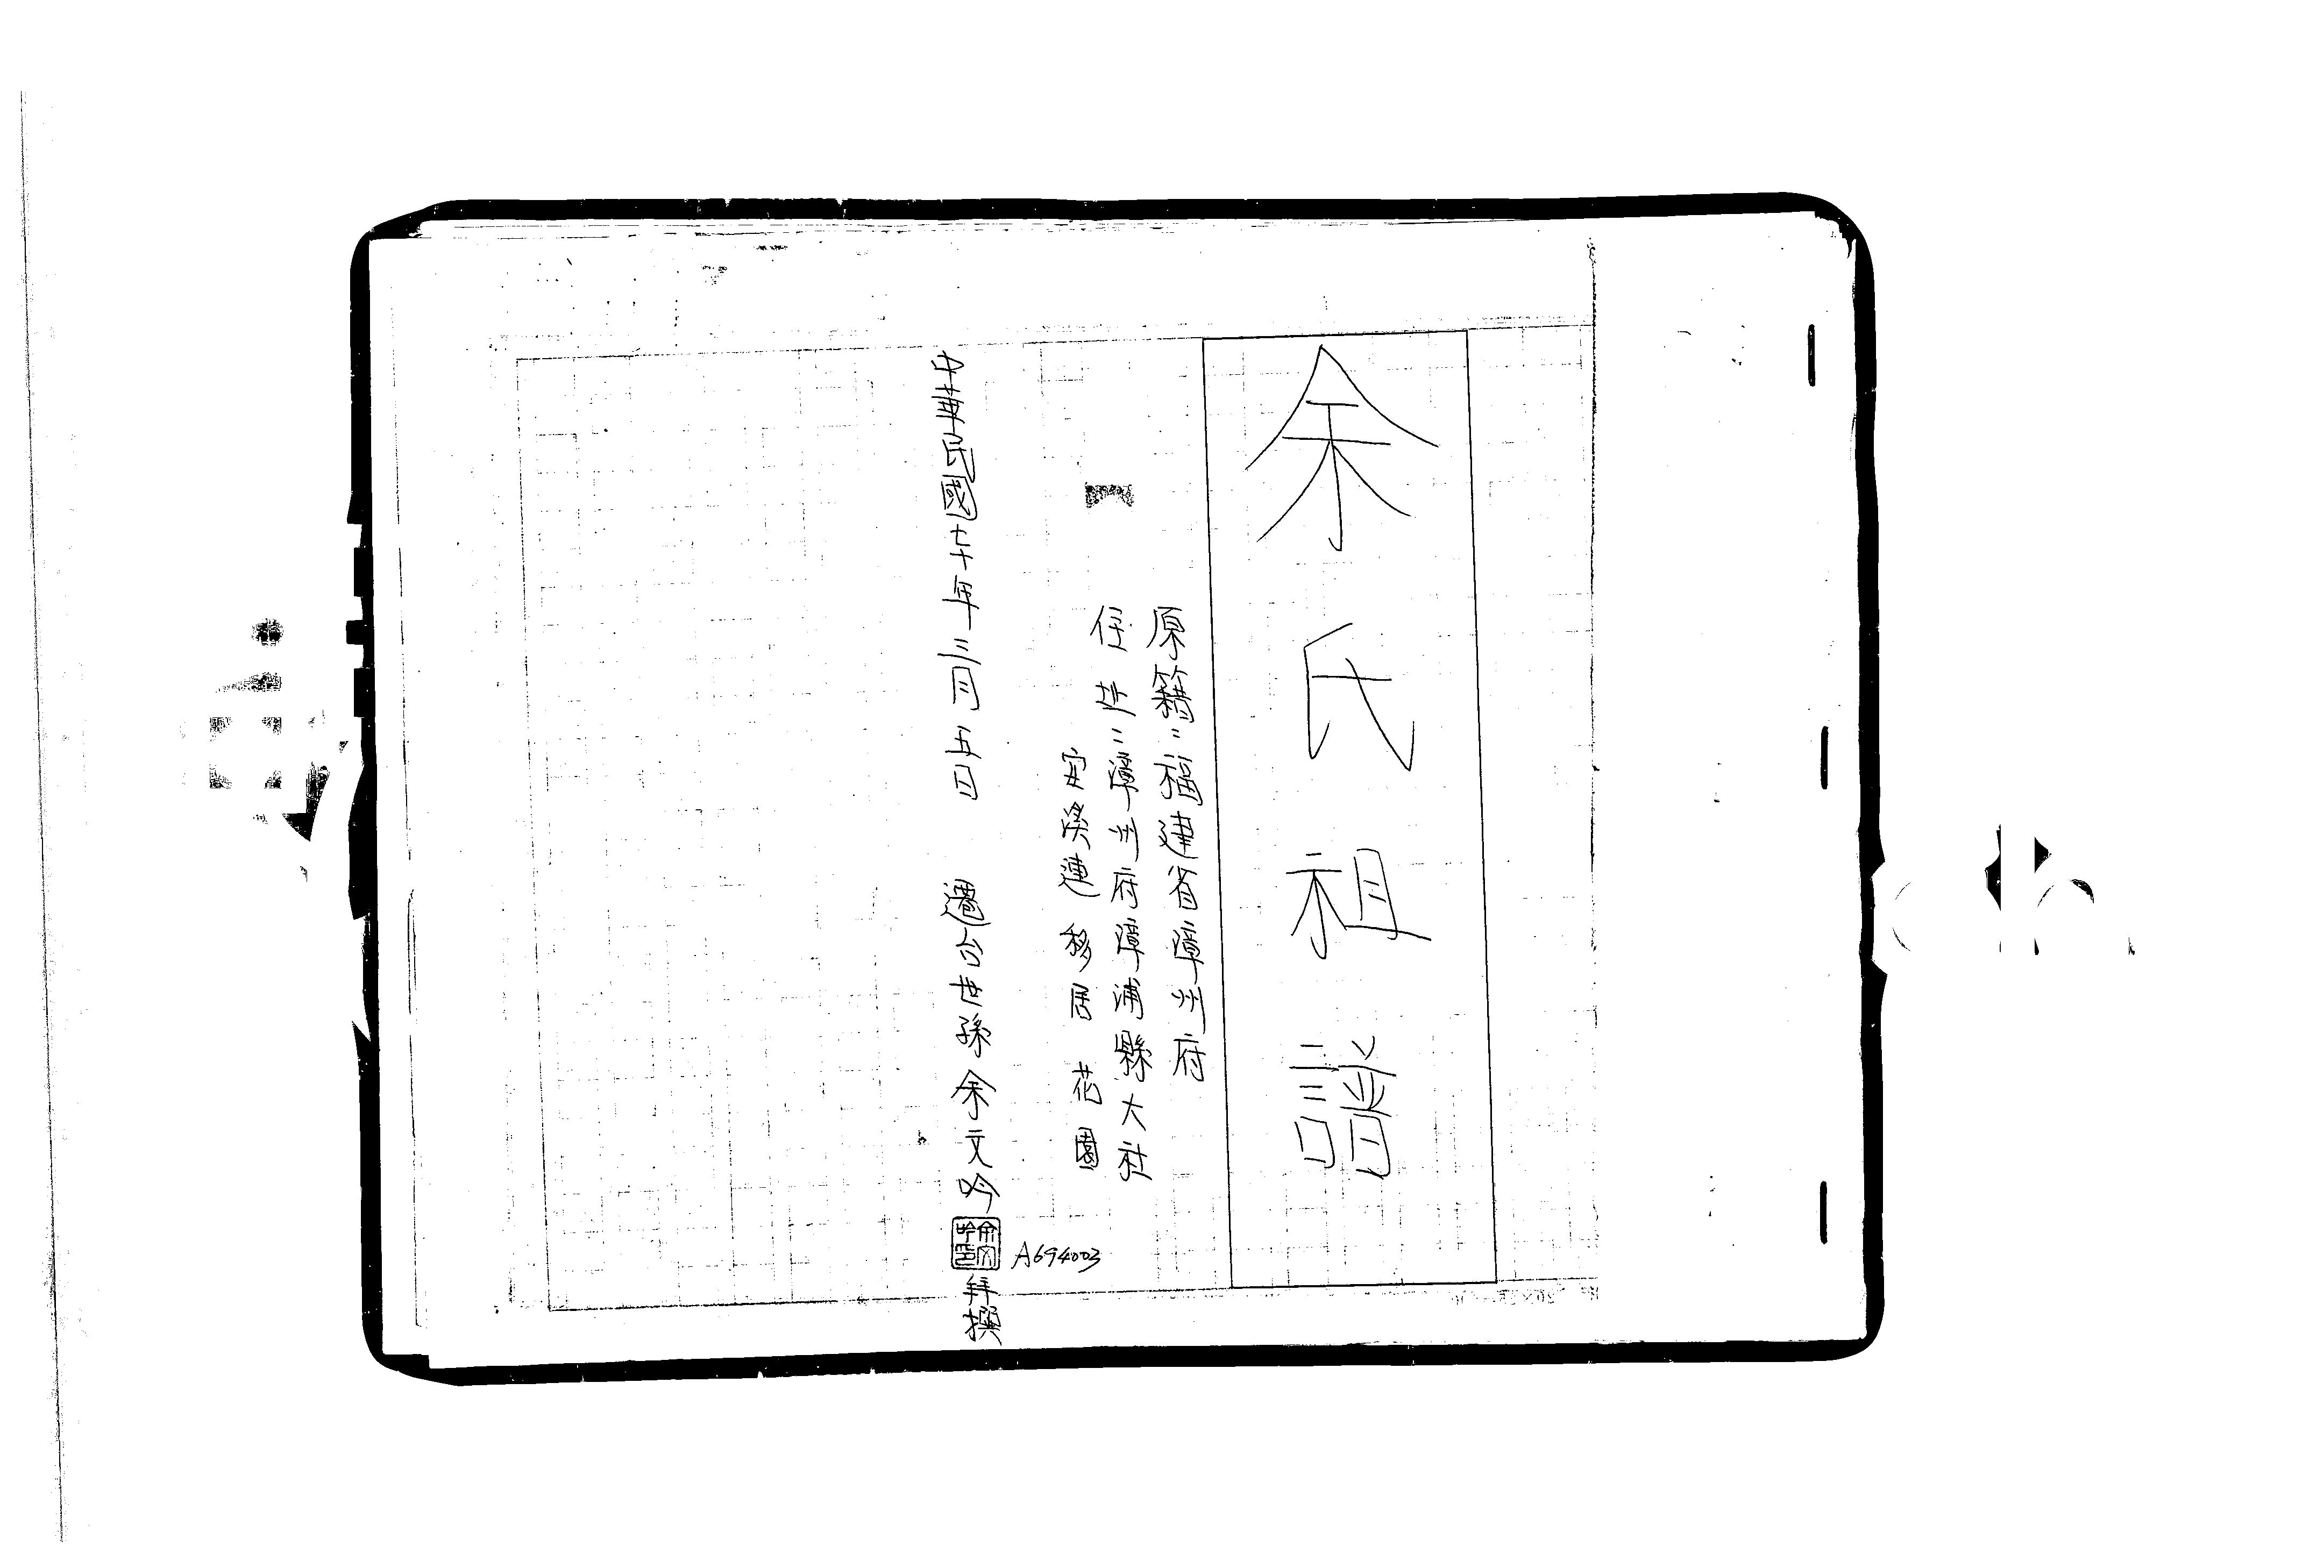 余氏祖譜
原籍:福建省漳州府
住 漳州府漳浦縣大社
移居花園
中華民國六十年三月五日 公 孫余文吟 拜撰
余文吟印
A694003